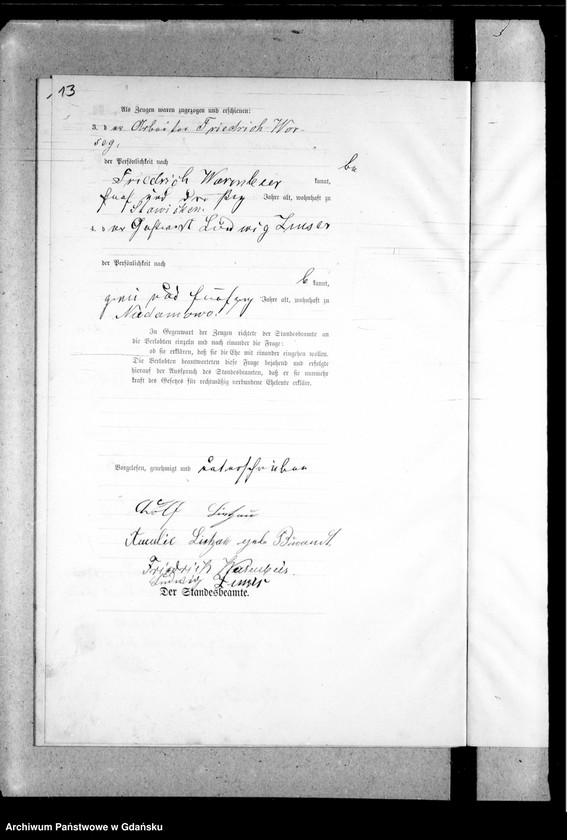 13
Als Zeugen waren zugezogen und erschienen:
3. der Arbeiter Friedrich
der Persönlichkeit nach
be
Friedrich kannt,
fünf und Jahre alt, wohnhaft zu
4. der Ludwig Zinser
der Persönlichkeit nach
be kannt,
und fünfzig Jahre alt, wohnhaft zu
Niedamowo.
In Gegenwart der Zeugen richtete der Standesbeamte an
die Verlobten einzeln und nach einander die Frage:
ob sie erklären, daß sie die Ehe mit einander eingehen wollen.
Die Verlobten beantworteten diese Frage bejahend und erfolgte
hierauf der Ausspruch des Standesbeamten, daß er sie nunmehr
kraft des Gesetzes für rechtmäßig verbundene Eheleute erkläre.
Vorgelesen, genehmigt und unterschrieben
Adolf
Amalie
Friedrich
Ludwig Zinser
Der Standesbeamte.
Archiwum Państwowe w Gdańsku